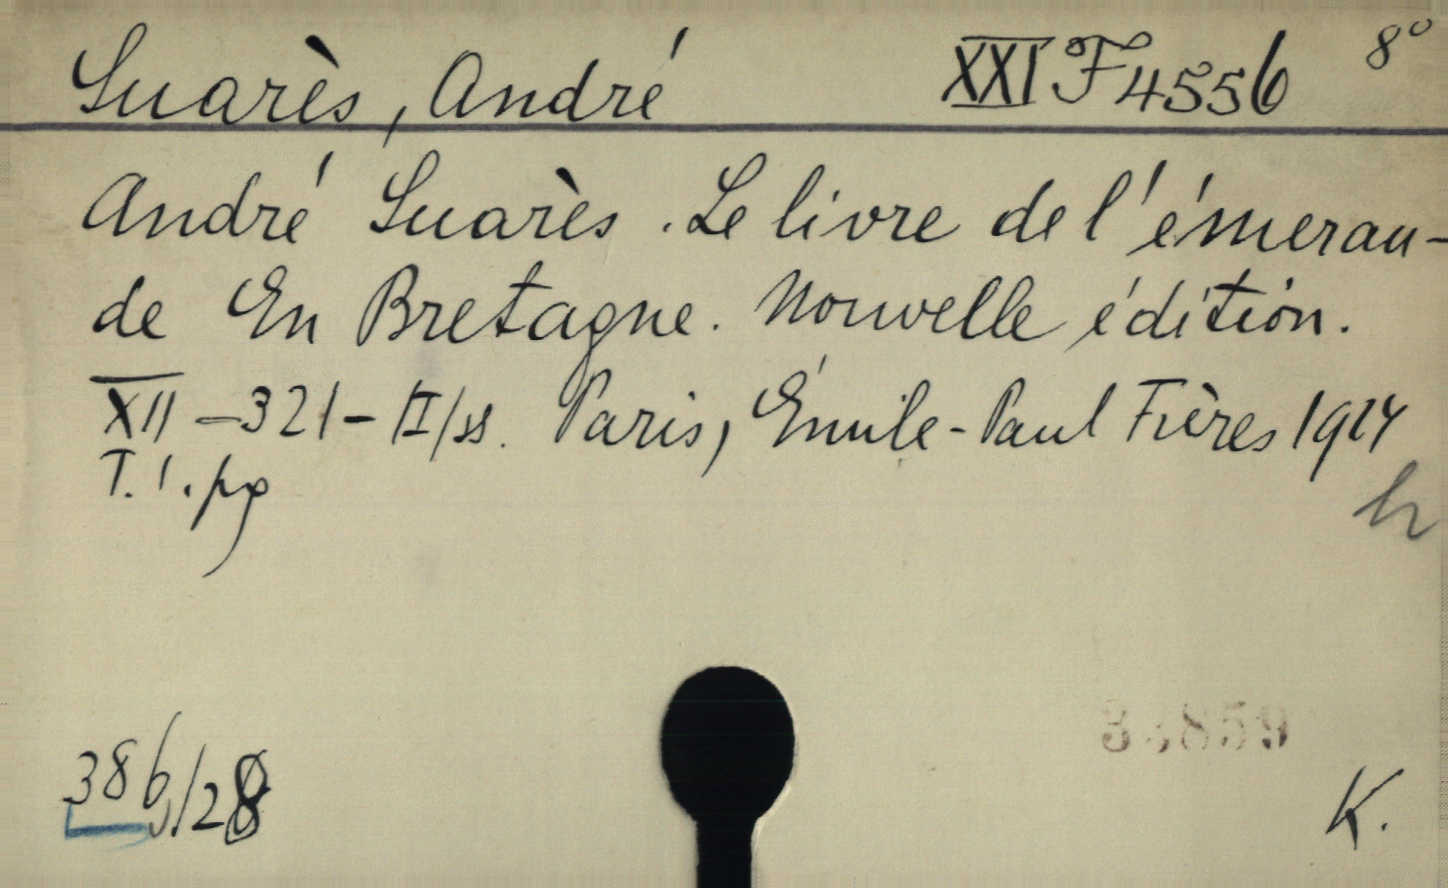 Suarès, André XXI F 4556 8°
André Suarès. Le livre de l'émerau-
de En Bretagne. Nouvelle édition.
XII-321-II/ss. Paris, Émile-Paul Frères 1924
T.1.pg
386/28
K.